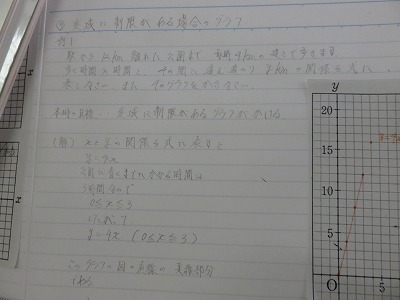 ③ 変域に制限がある場合のグラフ
例1
駅から 12km 離れた公園まで 時速4kmの速さで歩きます
歩く時間 x時間と、その間に進む道のり y kmの関係を式に
表しなさい また そのグラフをかきなさい
本時の目標 変域に制限があるグラフがかける
(解) xとyの関係を式に表すと
y=4x
公園に着くまでにかかる時間は
3時間なので
0≦x≦3
したがって
y=4x (0≦x≦3)
このグラフは図の直線の 実線部分
y
20
15
10
5
0
x